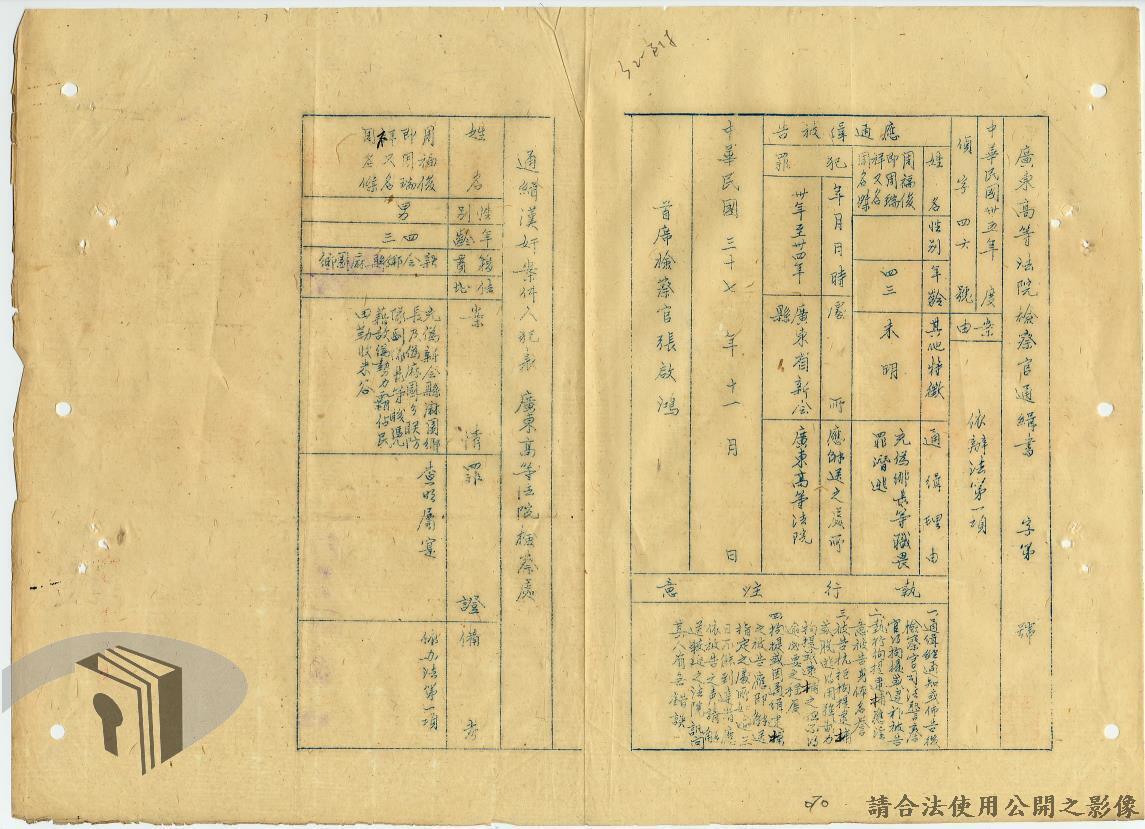 廣東高等法院檢察官通緝書　字第　號
中華民國卅五年度
偵字四六號
案由
依辦法第一項
應通緝被告
姓名
周福俊
即周瑞
祥又名
周名傑
性別
年齡
四三
其他特徵
未明
通緝理由
充偽鄉長等職畏
罪潛逃
犯罪
年月日時
卅年至卅四年
處所
廣東省新会
縣
應解送之處所
廣東高等法院
中華民國三十七年十一月　日
首席檢察官張啟鴻
執行注意
一、通緝經通知或佈告後
檢察官司法警察
官得拘提或逕行逮捕被告
二、執行拘提逮捕應注
意被告身体名譽
三、被告抗拒拘提逮捕
或脫逃得用強制力
拘提或逮捕之但不得
逾必要之程度
四、拘提或因通緝逮捕
之被告應即解送
指定之處所如三
日不能到達者應
依被告之聲請解
送較近之法院訊問
其人有無錯誤
通緝漢奸案件人犯表　廣東高等法院檢察處
姓名
周福俊
即周瑞
祥又名
周名傑
性別
男
年齡
四三
籍貫住址
新会鄉縣麻園鄉
案情
充偽新会縣麻園鄉
長及偽麻園分联防
隊副隊長等職憑
藉敵偽勢力霸佔民
田勤收米谷
罪證
查明屬寔
備考
依办法第一項
070
請合法使用公開之影像